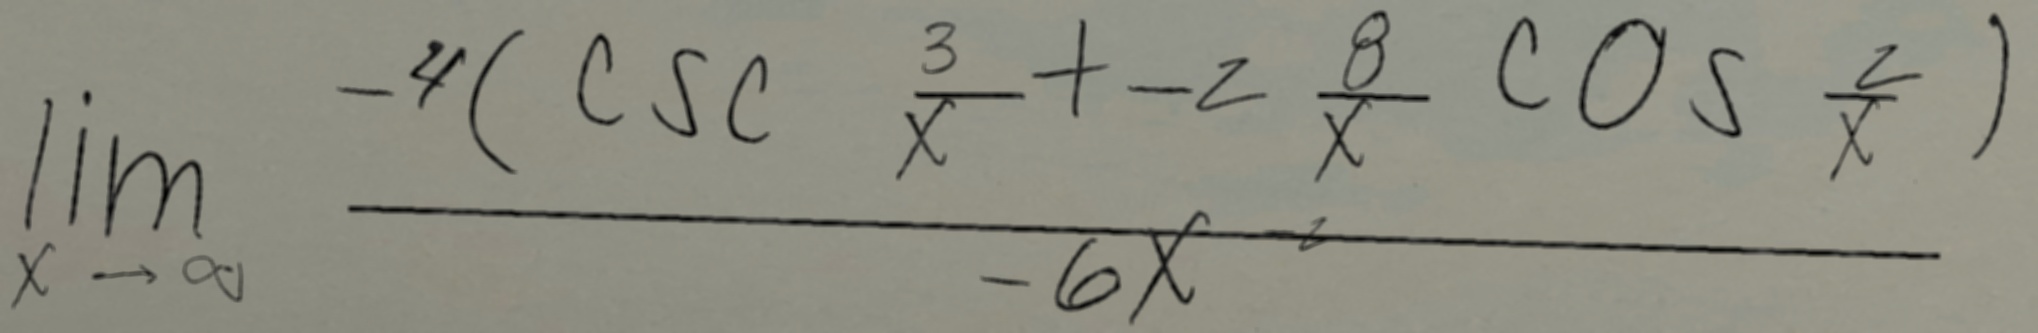 \lim_{x \to \infty} \frac{-4(\csc \frac{3}{x} + -2 \frac{8}{x} \cos \frac{2}{x})}{-6x^{-2}}